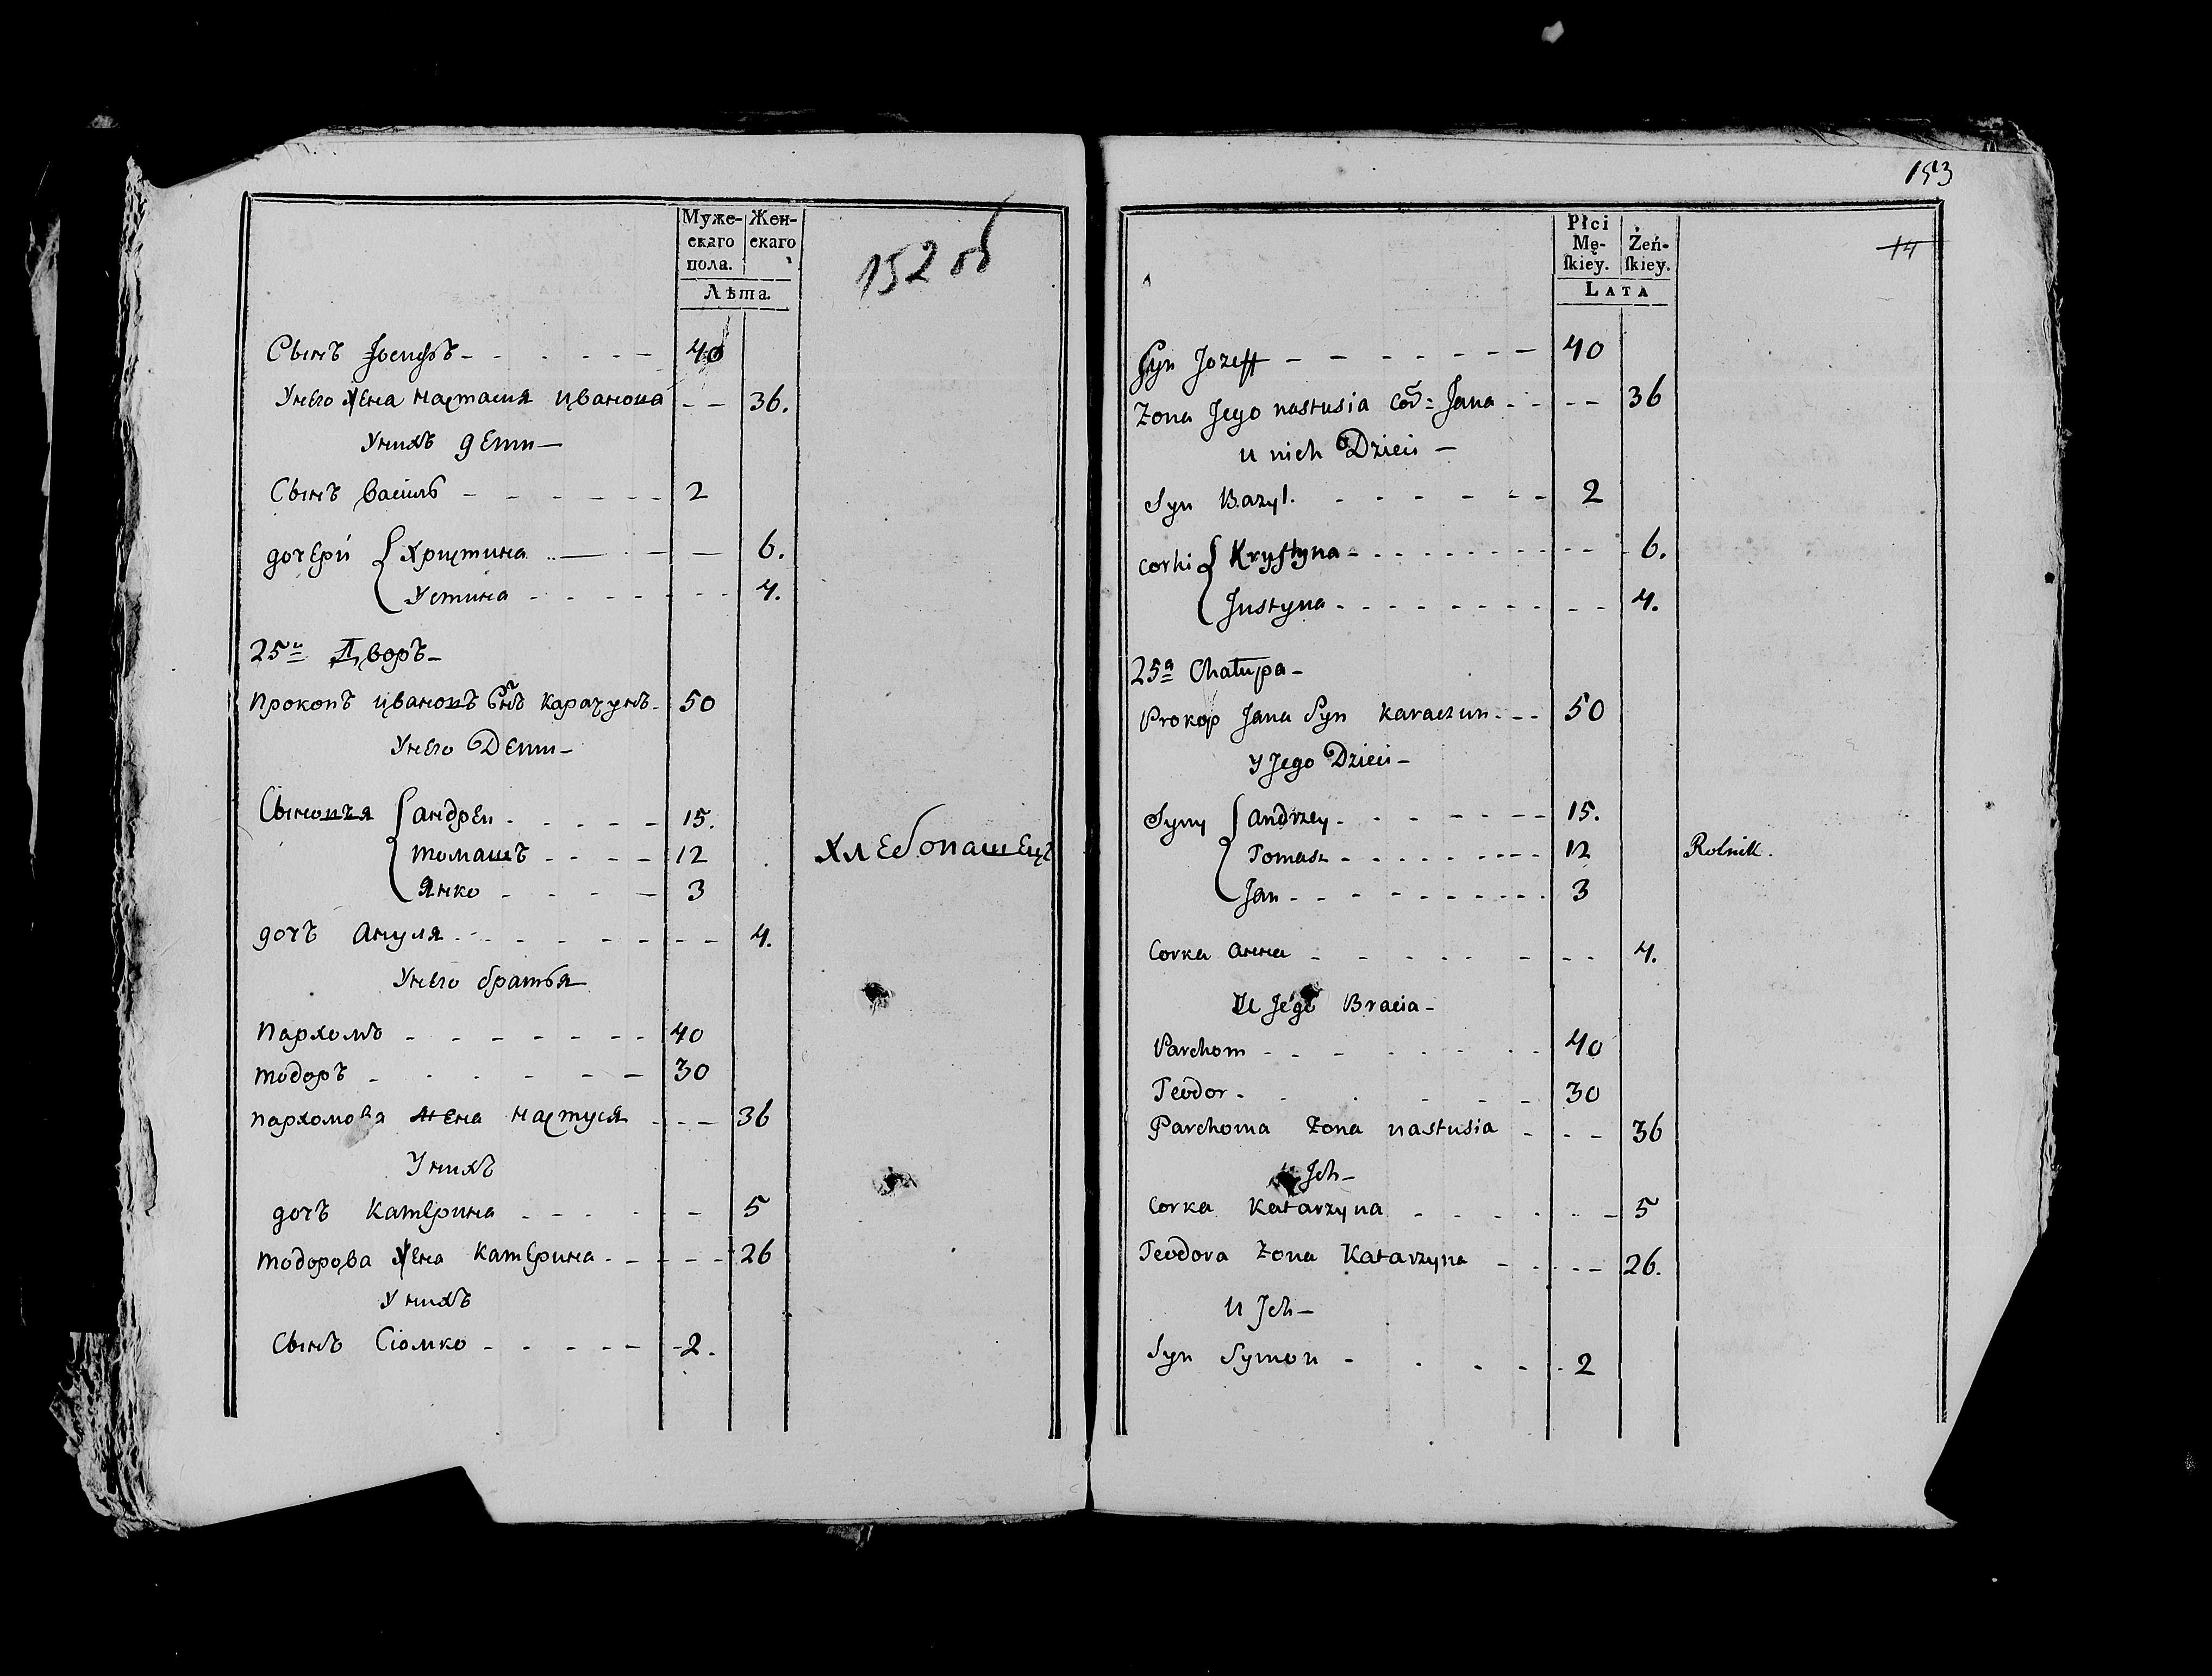 152 об
Муже-
скаго
пола.
Жен-
скаго
Лѣта.
Сынъ Іосифъ 40
Унего жена настасия иванова 36.
Унихъ дети
Сынъ василь 2
дочери { Христина 6.
Устина 4.
25й Дворъ
Прокопъ ивановъ Снъ карачунъ 50
Унего Дети
Сыновья { андреи 15.
томашъ 12 Хлебопашецъ
Янко 3
дочъ Ануля 4.
Унего братья
Пархомъ 40
тодоръ 30
пархомова жена настуся 36
Унихъ
дочъ катерина 5
тодорова жена катерина 26
Унихъ
Сынъ Сіомко 2.
153
14
Płci
Mę-
ſkiey.
Żeń-
ſkiey.
LATA
Syn Jozeff 40
Zona Jego nastusia Cor: Jana 36
u nich Dzieci
Syn Bazyl. 2
corki { Krystyna 6.
Justyna 4.
25a Chałupa
Prokop Jana Syn karaczun 50
y Jego Dzieci
Syny { andrzey 15.
Tomasz 12 Rolnik.
Jan 3
Corka анна 4.
U Jego Bracia
Parchom 40
Teodor 30
Parchoma Zona nastusia 36
u Jch
Corka Katarzyna 5
Teodora Zona Katarzyna 26.
u Jch
Syn Symon 2